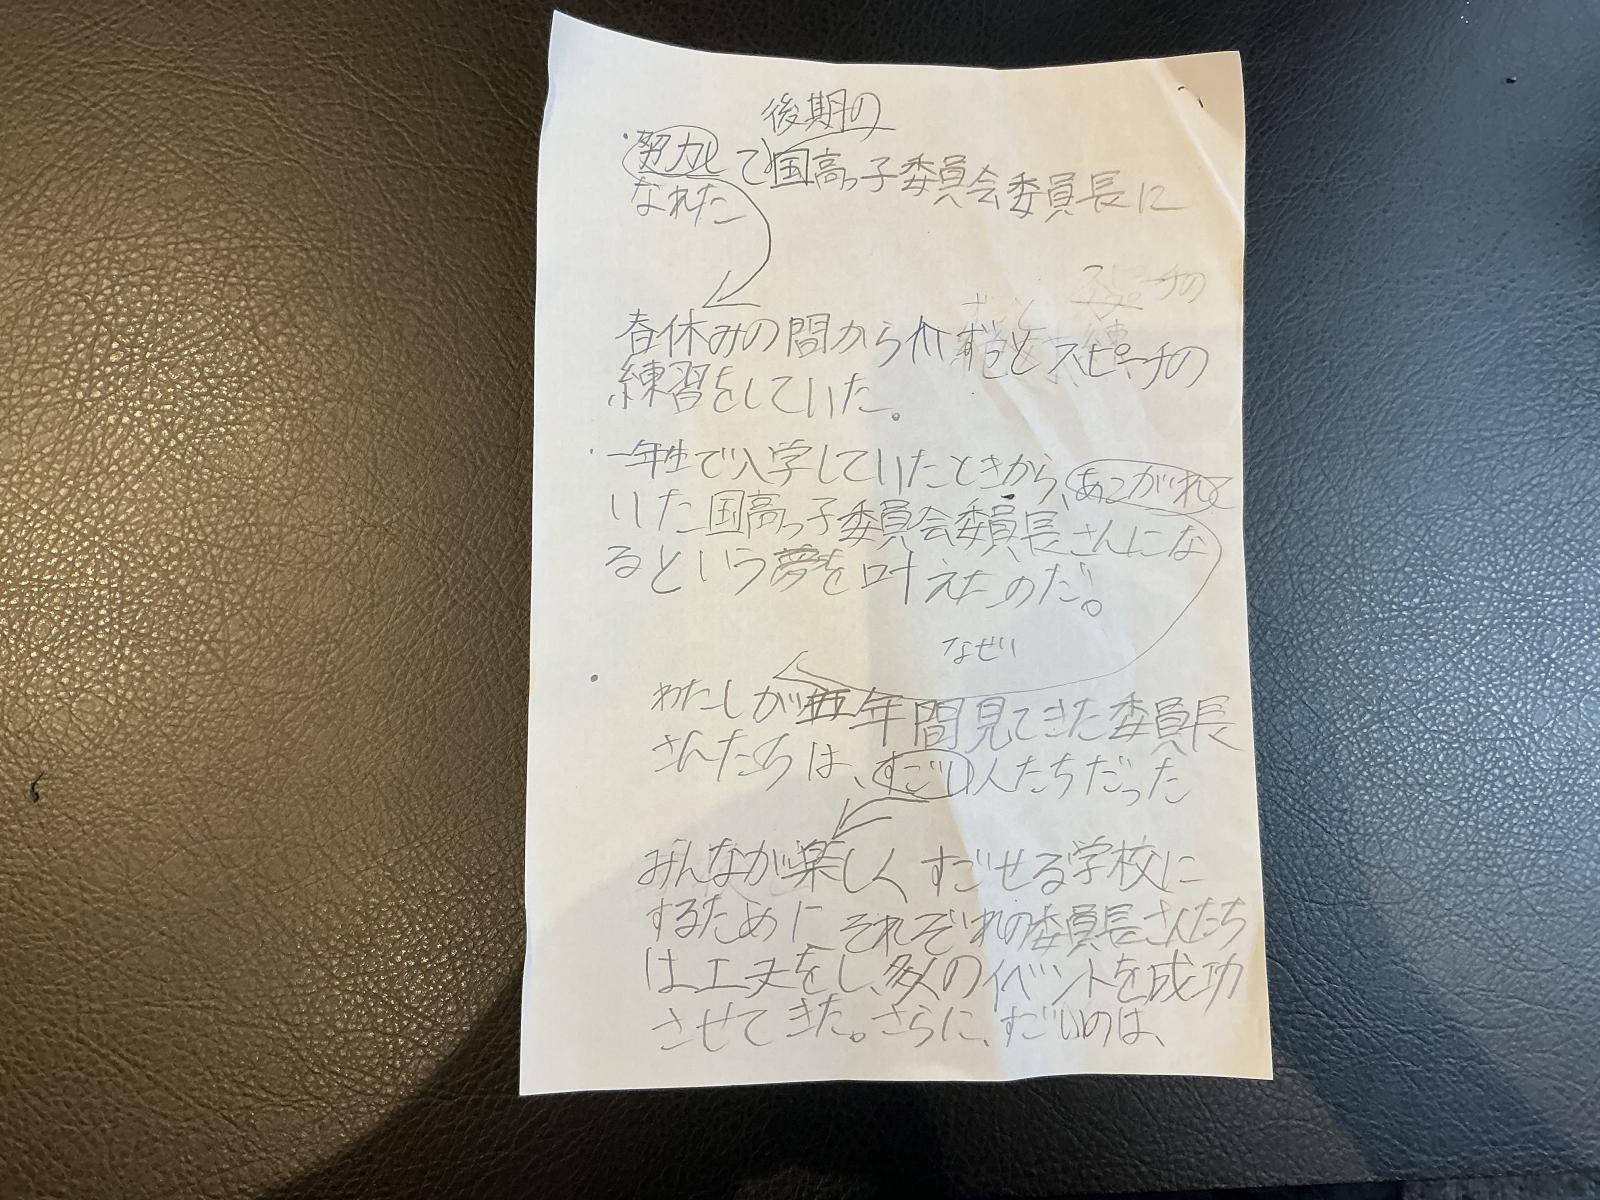 後期の
・努力して国高っ子委員会委員長に
なれた
スピーチの
ずっと 練
春休みの間から ずっとスピーチの
練習をしていた。
・一年生で入学していたときから、あこがれて
いた国高っ子委員会委員長さんにな
るという夢を叶えたのだ。
なぜい
・わたしが五年間見てきた委員長
さんたちは、すごい人たちだった
みんなが楽しくすごせる学校に
するために それぞれの委員長さんたち
は工夫をし、多くのイベントを成功
させてきた。さらに、すごいのは、